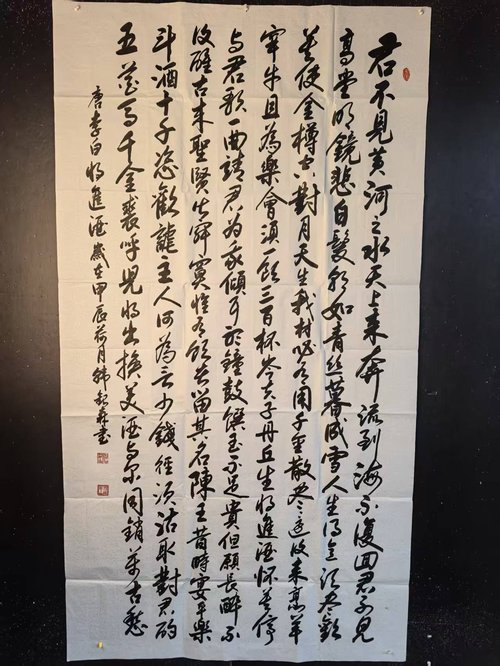 君不見黃河之水天上來奔流到海不復回君不見
高堂明鏡悲白髮朝如青絲暮成雪人生得意須盡歡
莫使金樽空對月天生我材必有用千金散盡還復來烹羊
宰牛且為樂會須一飲三百杯岑夫子丹丘生將進酒杯莫停
與君歌一曲請君為我傾耳聽鐘鼓饌玉不足貴但願長醉不
復醒古來聖賢皆寂寞惟有飲者留其名陳王昔時宴平樂
斗酒十千恣歡謔主人何為言少錢徑須沽取對君酌
五花馬千金裘呼兒將出換美酒與爾同銷萬古愁
唐李白將進酒歲在甲辰荷月韓森書